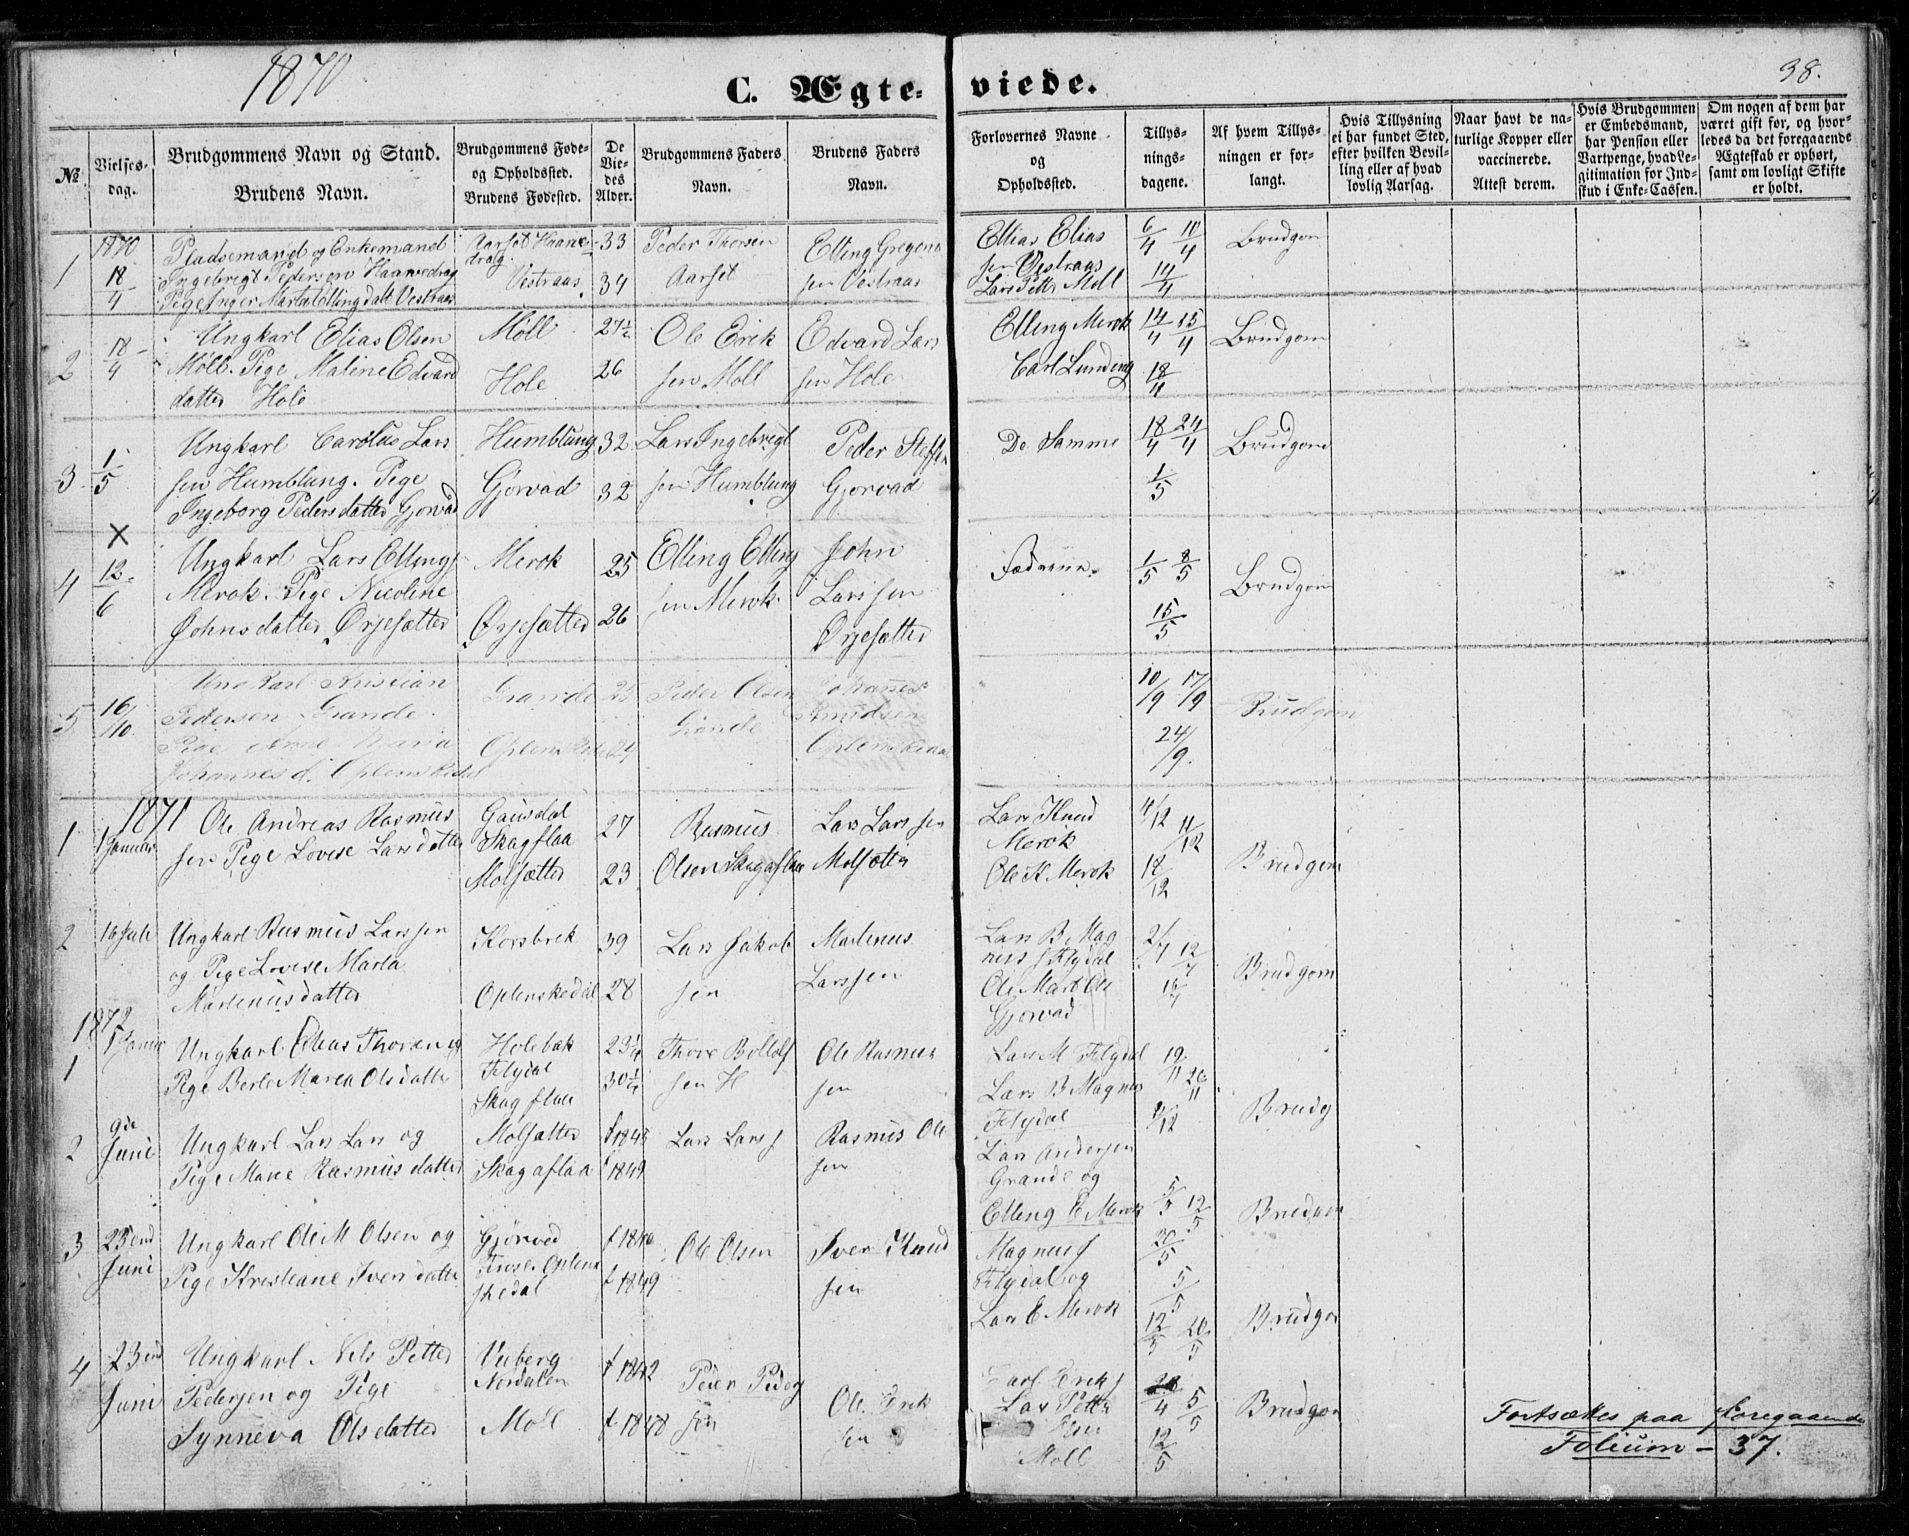 1870
C. Ægte-
viede.
38.
№
Vielses-
dag.
Brudgommens Navn og Stand.
Brudens Navn.
Brudgommens Føde-
og Opholdssted.
Brudens Fødested.
De
Vie-
des
Alder.
Brudgommens Faders
Navn.
Brudens Faders
Navn.
Forlovernes Navne
og
Opholdssted.
Tillys-
nings-
dagene.
Af hvem Tillys-
ningen er for-
langt.
Hvis Tillysning
ei har fundet Sted,
efter hvilken Bevil-
ling eller af hvad
lovlig Aarsag.
Naar havt de na-
turlige Kopper eller
vaccinerede.
Attest derom.
Hvis Brudgommen
er Embedsmand,
har Pension eller
Vartpenge, hvad Le-
gitimation for Ind-
skud i Enke-Cassen.
Om nogen af dem har
været gift før, og hvor-
ledes da det foregaaende
Ægteskab er ophørt,
samt om lovligt Skifte
er holdt.
1
1870
18/4
Pladsemand og Enkemand
Ingebregt Pedersen Haanedrag
Pige Inger Marta Elling datt Vestraas
Aarset Haane-
drag
Vestraas
33
34
Peder Thorsen
Aarset
Elling Gregers
sen Vestraas
Ellias Elias
sen Vestraas
Lars Pettr Moll
6/4 10/4
14/4
Brudgom
2
18/4
Ungkarl Elias Olsen
Möll. Pige Maline Edvard
datter Hole
Möll
Hole
27½
26
Ole Erik
sen Moll
Edvard Lars
sen Hole
Elling Merok
Carl Lundeng
14/4 15/4
18/4
Brudgom
3
1/5
Ungkarl Carolus Lars
sen Humblung. Pige
Ingeborg Pedersdatter Gjorvad
Humblung
Gjorvad
32
32
Lars Ingebregt
sen Humblung
Peder Steffen
Gjorvad
De Samme
18/4 24/4
1/5
Brudgom
×
4
12/6
Ungkarl Lars Ellings
Merok. Pige Nicoline
Johnsdatter Ørjesætter
Merok
Ørjesætter
25
26
Elling Elling
sen Merok
John
Larssen
Ørjesætter
Fædrene
1/5 8/5
15/5
Brudgom
5
16/10
Ungkarl Kristian
Pedersen Grande
Pige Anne Maria
Johannes d. Oplenskedal
Grande
25
24
Peder Olsen
Grande
Johannes
Knudsen
10/9 17/9
24/9
Brudgom
1871
1
1 Januar
Ole Andreas Rasmus
sen Pige Lovise Lars datter
Gausdal
Skagflaa
Molsætter
27
23
Rasmus
Olsen Skagaflaa
Lars Lars sen
Molsætter
Lars Knud
Merok
Ole K Merok
4/12 11/12
18/12
Brudgom
2
16 Juli
Ungkarl Rasmus Larssen
og Pige Lovise Marta
Martenusdatter
Korsbrek
Oplenskedal
39
28
Lars Jakob
sen
Martenus
Larssen
Lars B. Mag
nus s Flydal
Ole Mart Ole
Gjorvad
2/7 12/7
16/7
Brudgom
1872
1
1 Januar
Ungkarl Elias Thoresen og
Pige Berte Maria Olsdatter
Holebak
Flydal
Skagflaa
23¼
30¼
Thore Bottolf
sen H
Ole Rasmus
sen
Lars M Flydal
Lars B Magnus
Flydal
19/11 26/11
Brudg
2
9de
Juni
Ungkarl Lars Lars og
Pige Marie Rasmus datter
Molsætter
Skagaflaa
f 1843
f 1849
Lars Lars s
Rasmus Ole
sen
Lars Andersen
Grande og
Elling E Merok
5/5 12/5
20/5
Brudgom
3
23end
Juni
Ungkarl Ole M Olsen og
Pige Kristiane Iversdatter
Gjørvad
skedal
f 1840
f 1849
Ole Olsen
Iver Knud
sen
Magnus s
Flydal og
Lars E Merok
5/5
12/5 20/5
Brudgom
4
23end
Juni
Ungkarl Nils Petter
Pedersen og Pige
Synneva Olsdatter
Nordalen
Moll
f 1842
f 1848
Peder Peders
sen
Ole Erik
sen
Carl Eriks
Lars Petter
Moll
5/5
12/5
Brudgom
Fortsættes paa foregaaende
Folium - 37.